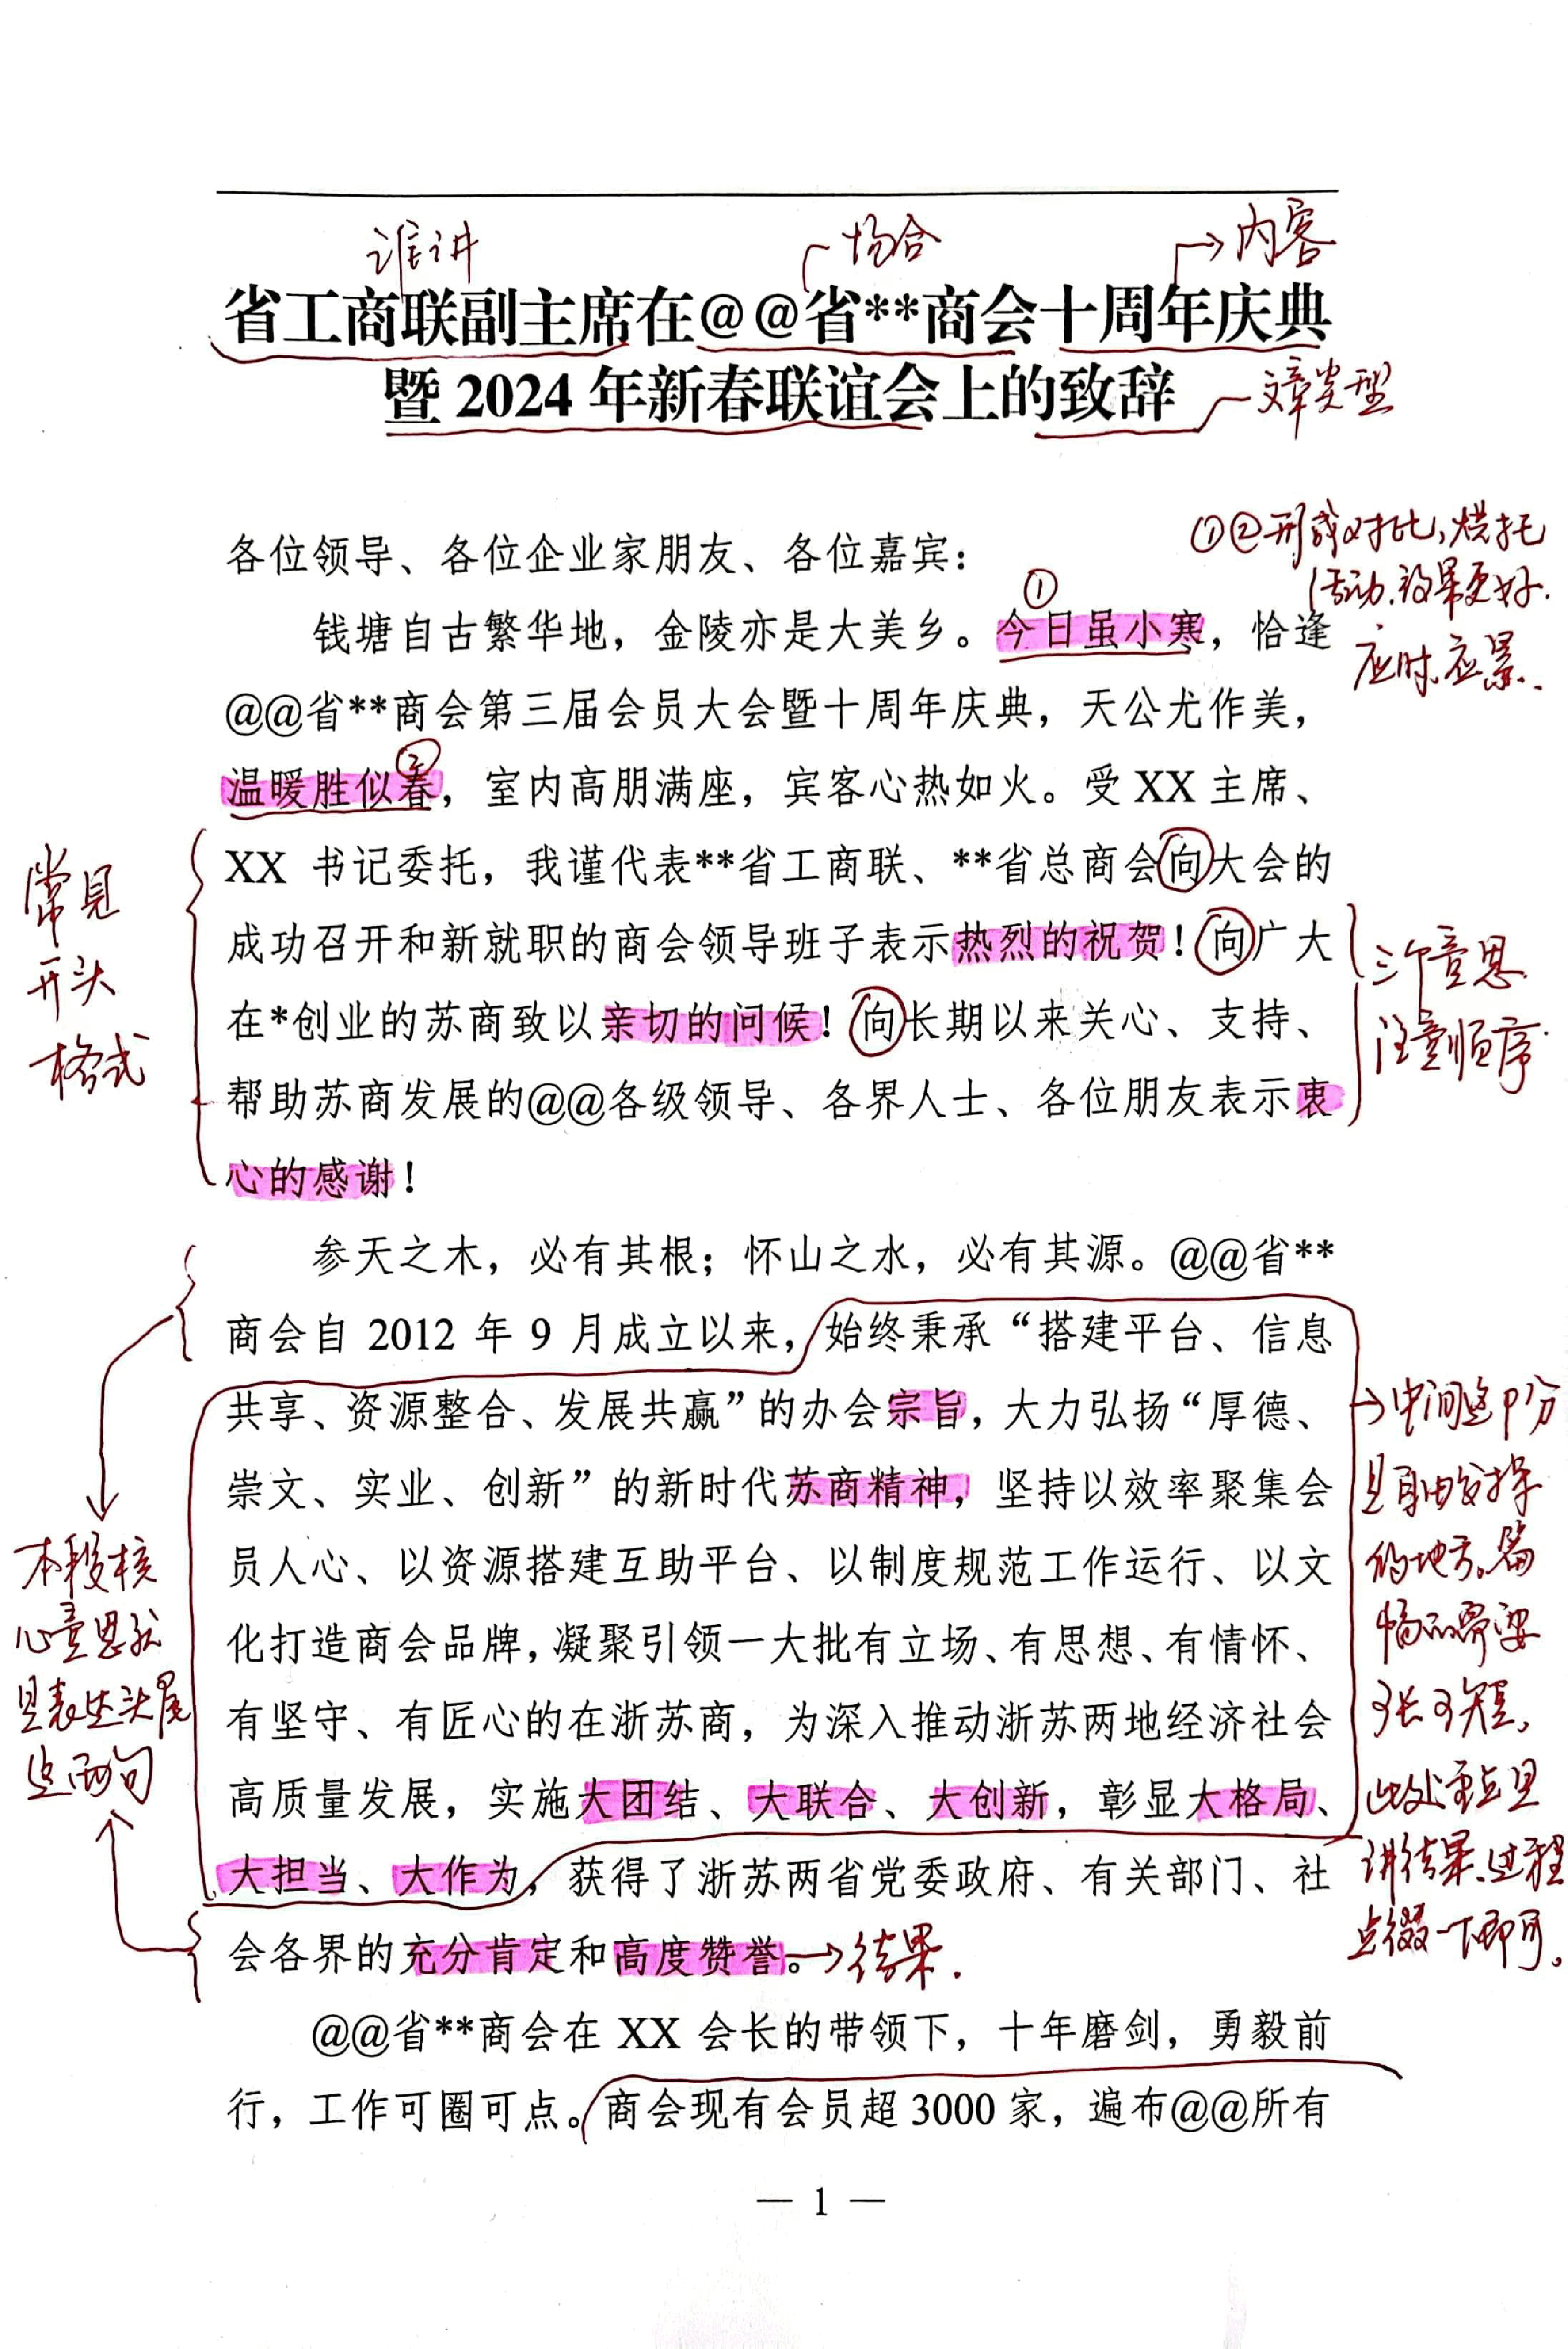 谁讲
场合
内容
省工商联副主席在@@省**商会十周年庆典
暨 2024 年新春联谊会上的致辞
文章类型
各位领导、各位企业家朋友、各位嘉宾：
①②形成对比，烘托
活动，效果更好.
应时应景.
①
钱塘自古繁华地，金陵亦是大美乡。今日虽小寒，恰逢
@@省**商会第三届会员大会暨十周年庆典，天公尤作美，
②
温暖胜似春，室内高朋满座，宾客心热如火。受 XX 主席、
XX 书记委托，我谨代表**省工商联、**省总商会向大会的
成功召开和新就职的商会领导班子表示热烈的祝贺！向广大
在*创业的苏商致以亲切的问候！向长期以来关心、支持、
帮助苏商发展的@@各级领导、各界人士、各位朋友表示衷
心的感谢！
常见
开头
格式
三个意思
注意顺序
参天之木，必有其根；怀山之水，必有其源。@@省**
商会自 2012 年 9 月成立以来，始终秉承“搭建平台、信息
共享、资源整合、发展共赢”的办会宗旨，大力弘扬“厚德、
崇文、实业、创新”的新时代苏商精神，坚持以效率聚集会
员人心、以资源搭建互助平台、以制度规范工作运行、以文
化打造商会品牌，凝聚引领一大批有立场、有思想、有情怀、
有坚守、有匠心的在浙苏商，为深入推动浙苏两地经济社会
高质量发展，实施大团结、大联合、大创新，彰显大格局、
大担当、大作为，获得了浙苏两省党委政府、有关部门、社
会各界的充分肯定和高度赞誉。
→结果.
本段核
心意思就
是表达头尾
这两句
中间这部分
是自由发挥
的地方。篇
幅而需要
可长可短，
此处重点是
讲结果，过程
点缀一下即可。
@@省**商会在 XX 会长的带领下，十年磨剑，勇毅前
行，工作可圈可点。商会现有会员超 3000 家，遍布@@所有
— 1 —